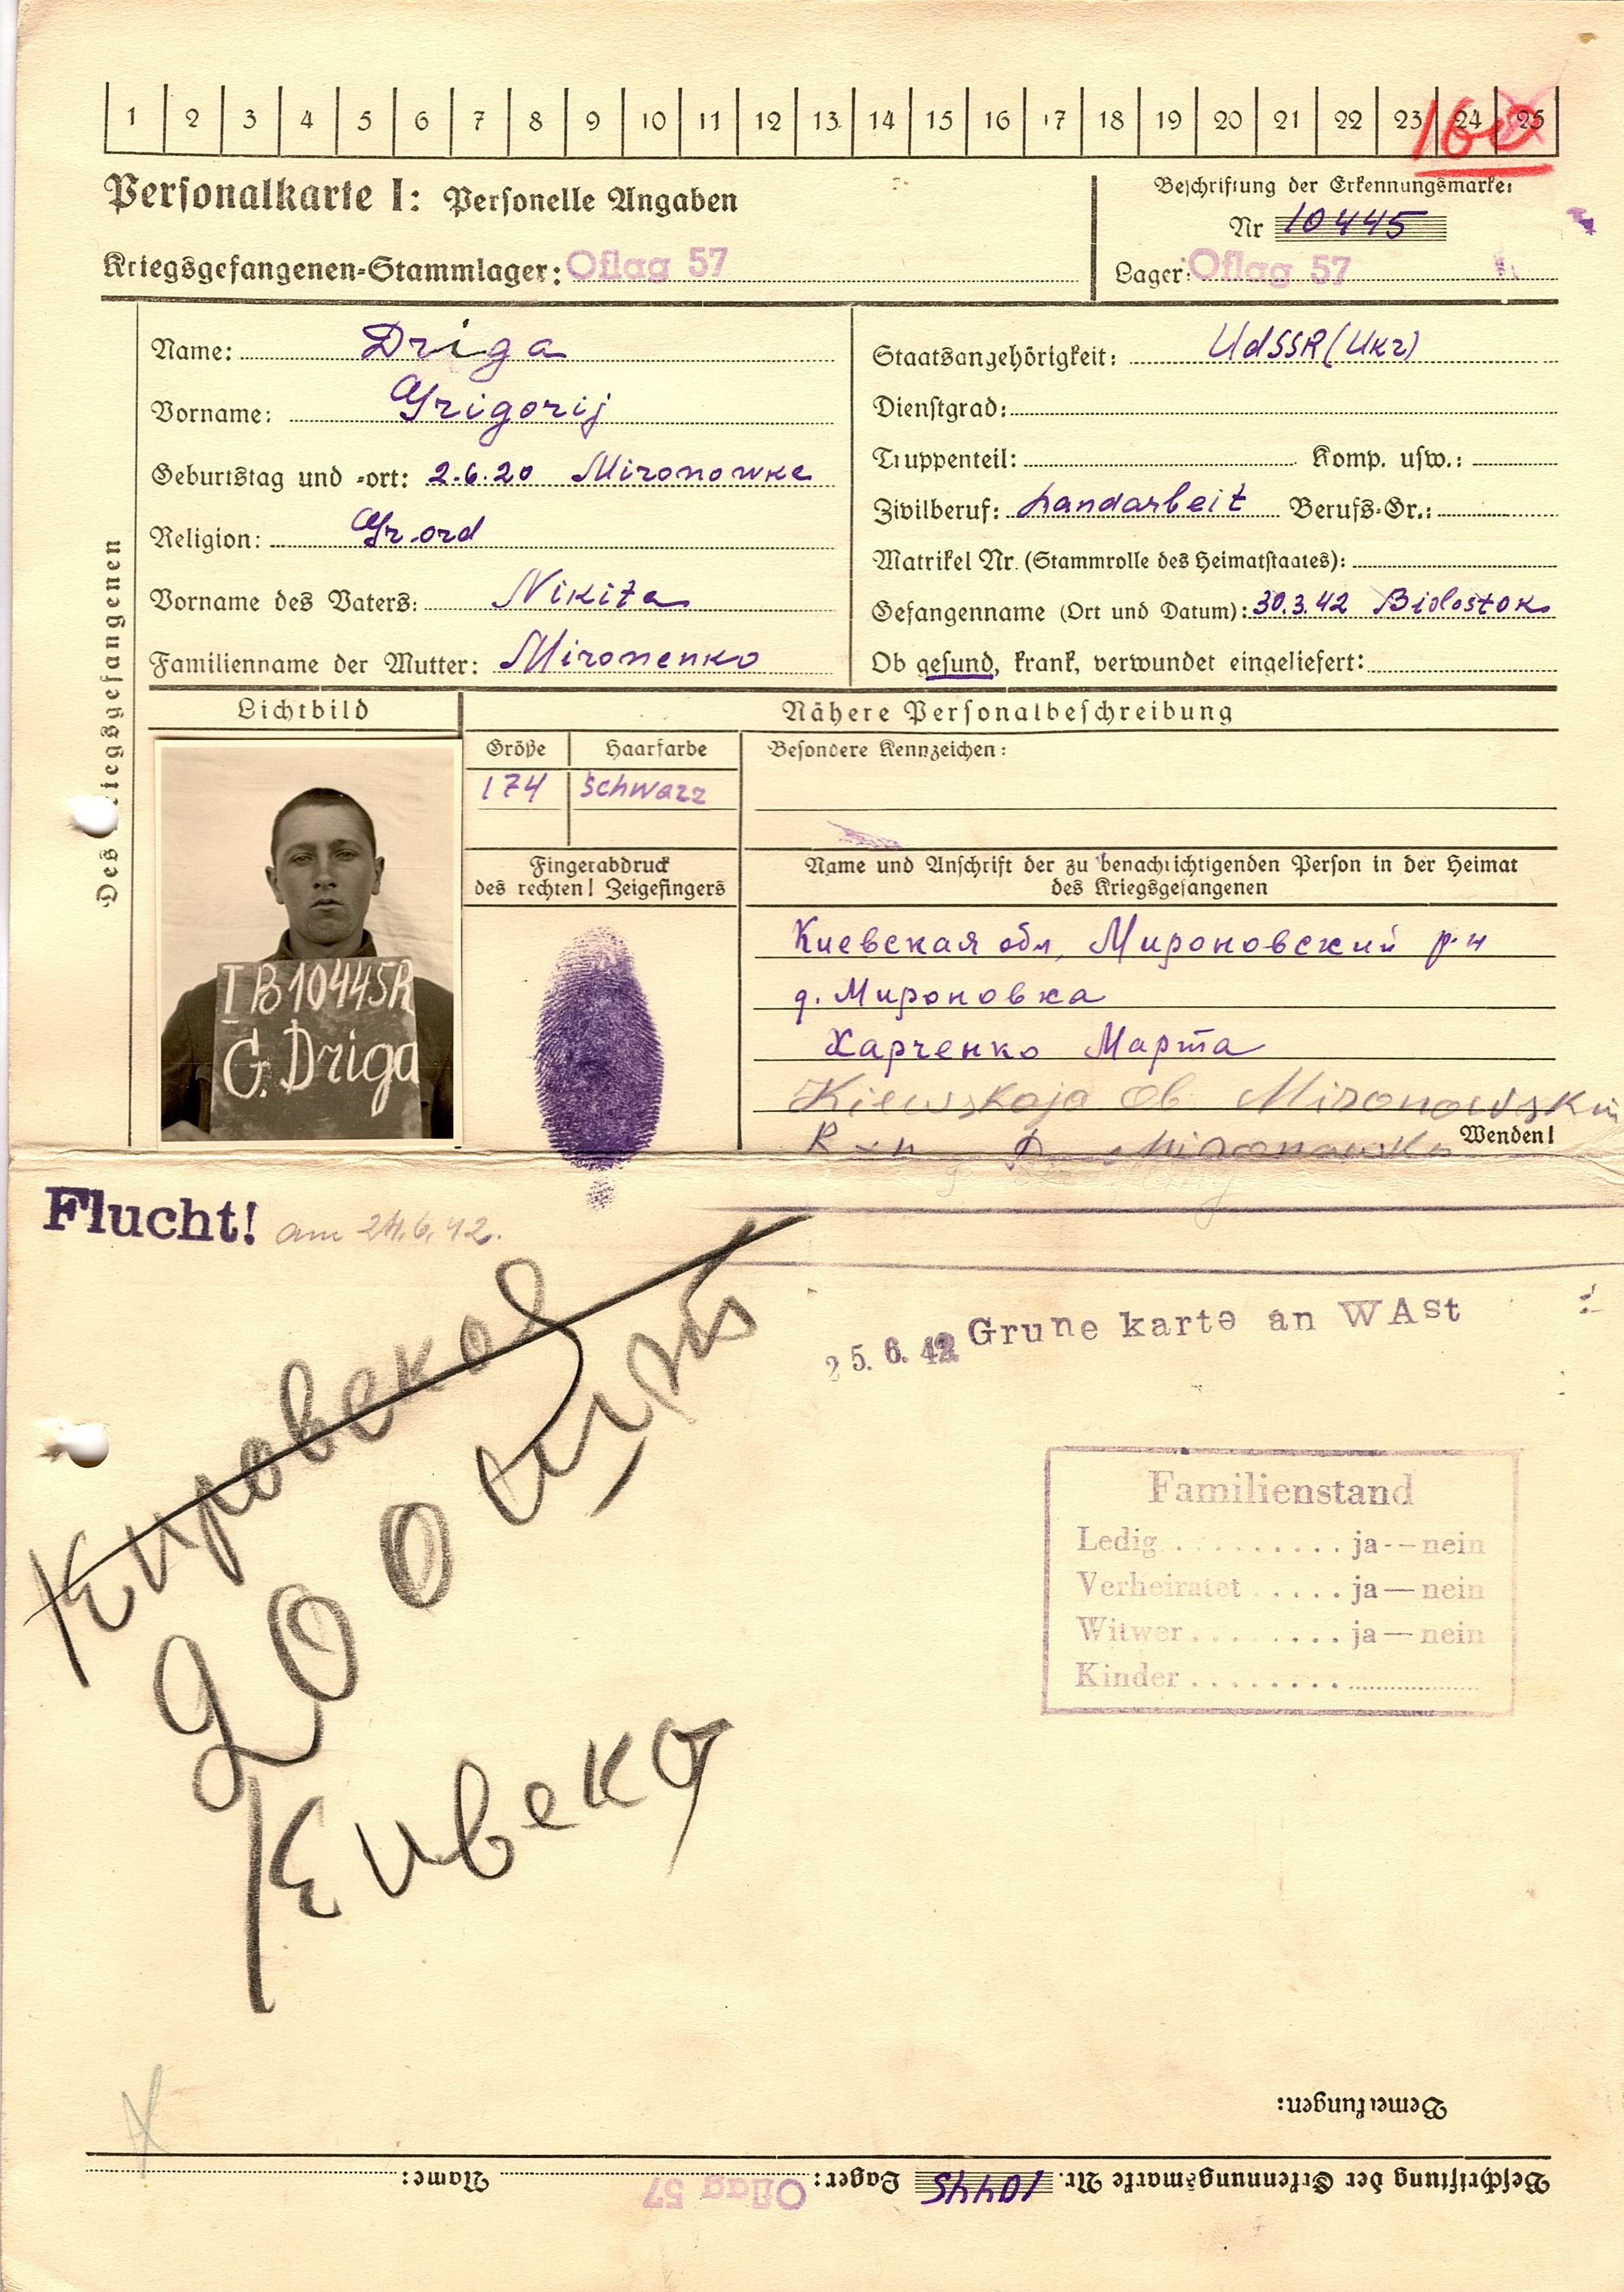 1 2 3 4 5 6 7 8 9 10 11 12 13 14 15 16 17 18 19 20 21 22 23 24 25
Personalkarte I: Personelle Angaben
Beschriftung der Erkennungsmarke:
Nr 10445
Kriegsgefangenen-Stammlager: Oflag 57
Lager: Oflag 57
Des Kriegsgefangenen
Name: Driga
Vorname: Grigorij
Geburtstag und -ort: 2.6.20 Mironowke
Religion: Gr. ord
Vorname des Vaters: Nikita
Familienname der Mutter: Mironenko
Staatsangehörigkeit: UdSSR (Ukr)
Dienstgrad:
Truppenteil: Komp. usw.:
Zivilberuf: Landarbeit Berufs-Gr.:
Matrikel Nr. (Stammrolle des Heimatstaates):
Gefangenname (Ort und Datum): 30.3.42 Biolostok
Ob gesund, krank, verwundet eingeliefert:
Lichtbild
Nähere Personalbeschreibung
Größe Haarfarbe
174 schwarz
Besondere Kennzeichen:
I B 10445R
G. Driga
Fingerabdruck
des rechten! Zeigefingers
Name und Anschrift der zu benachrichtigenden Person in der Heimat
des Kriegsgefangenen
Киевская обл, Мироновский р-н
д. Мироновка
Харченко Марта
Kiewskaja Ob Mironowskii
R-n D. Mironowka
Wenden!
Flucht! am 24.6.42.
25.6.42 Grune karte an WAst
Familienstand
Ledig ......... ja--nein
Verheiratet ..... ja—nein
Witwer ........ ja—nein
Kinder ........
Bemerkungen:
Beschriftung der Erkennungsmarke Nr. 10445 Lager: Oflag 57 Name: